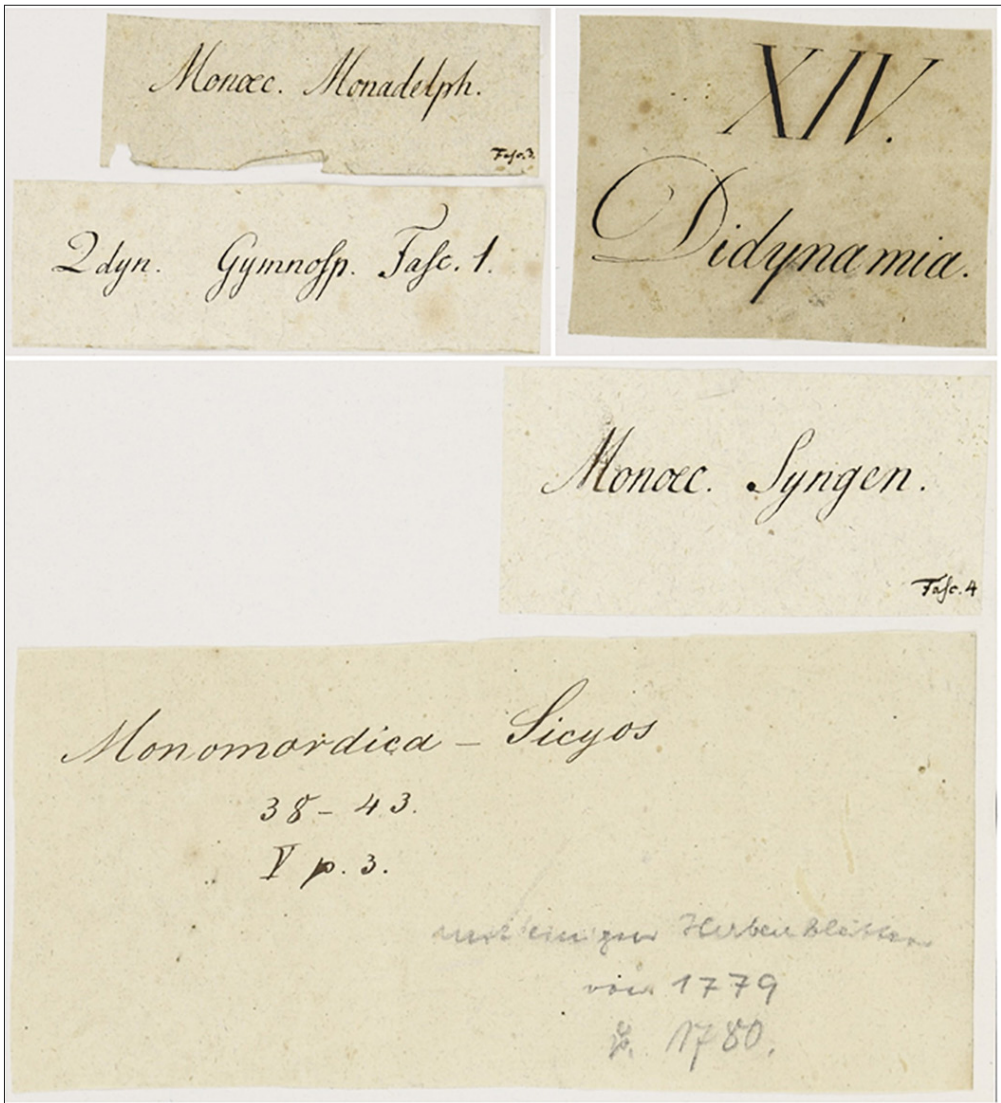 Monœc. Monadelph.
Fasc. 3.
2dyn. Gymnosp. Fasc. 1.
XIV.
Didynamia.
Monœc. Syngen.
Fasc. 4
Monomordica – Sicyos
38 – 43.
V p. 3.
mit einigen Herbarblättern
von 1779
1780.